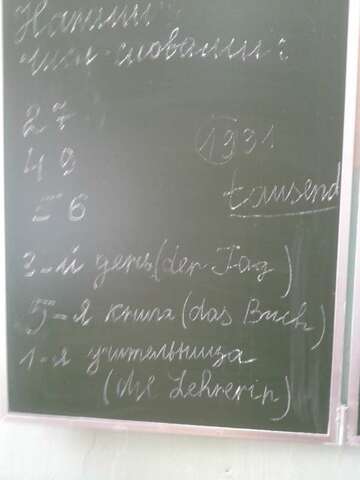 Напиши
числ. словами:
27
49
56
1931
tausend
3-й день (der Tag)
5-я книга (das Buch)
1-я учительница
(die Lehrerin)